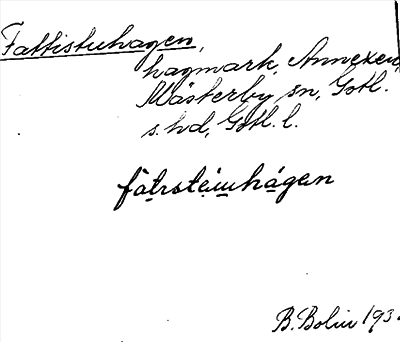 Fattistuhagen,
hagmark, Annexen,
Mästerby sn, Gotl.
s. hd, Gotl. l.
B. Bolin 193